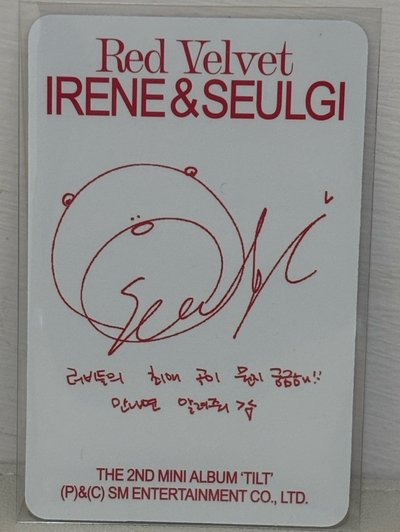 Red Velvet
IRENE & SEULGI
Seulgi
러비들의 최애 곡이 뭔지 궁금해!!
만나면 알려주기
THE 2ND MINI ALBUM ‘TILT’
(P)&(C) SM ENTERTAINMENT CO., LTD.